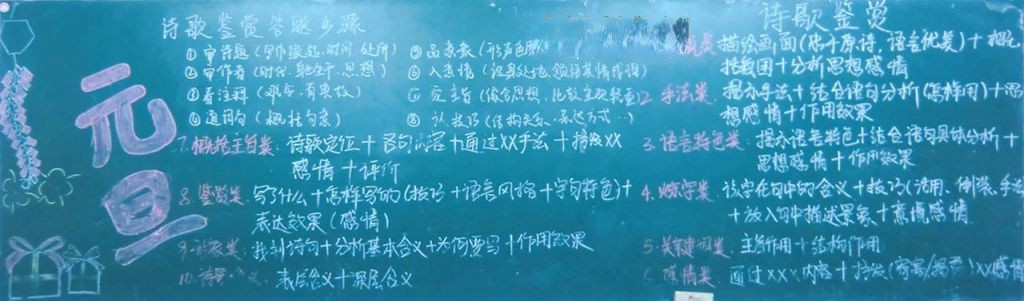 元旦
诗歌鉴赏答题步骤
① 审诗题 (写作缘起,时间,处所)
② 审作者 (时代,思想)
③ 看注释 (
④ 通词句 (概括句意)
⑤ 品意象 (形声色
⑥ 入意境 (设身处地,
⑦ 主旨 (
⑧ 认技巧 (结构关系、表达方式…)
7. 概括主旨类: 诗歌定位+语句内容+通过XX手法+抒发XX
感情+评价
8. 鉴赏类: 写了什么+怎样写的(技巧+语言风格+字句特色)+
表达效果(感情)
9. 找到诗句+分析基本含义+为何要写+作用效果
10. 表层含义+深层含义
诗歌鉴赏
描绘画面(忠于原诗,语言优美)+概
括氛围+分析思想感情
2. 手法类: 揭示手法+结合语句分析(怎样用)+思
想感情+作用效果
3. 语言特色类: 揭示语言特色+结合语句具体分析+
思想感情+作用效果
4. 炼字类: 该字在句中的含义+技巧(活用、
+放入句中描述景象+意境,感情
5. 关键词类: 主旨作用+结构作用
6. 感情类: 通过XXX内容+抒发(寄寓/揭露)XX感情